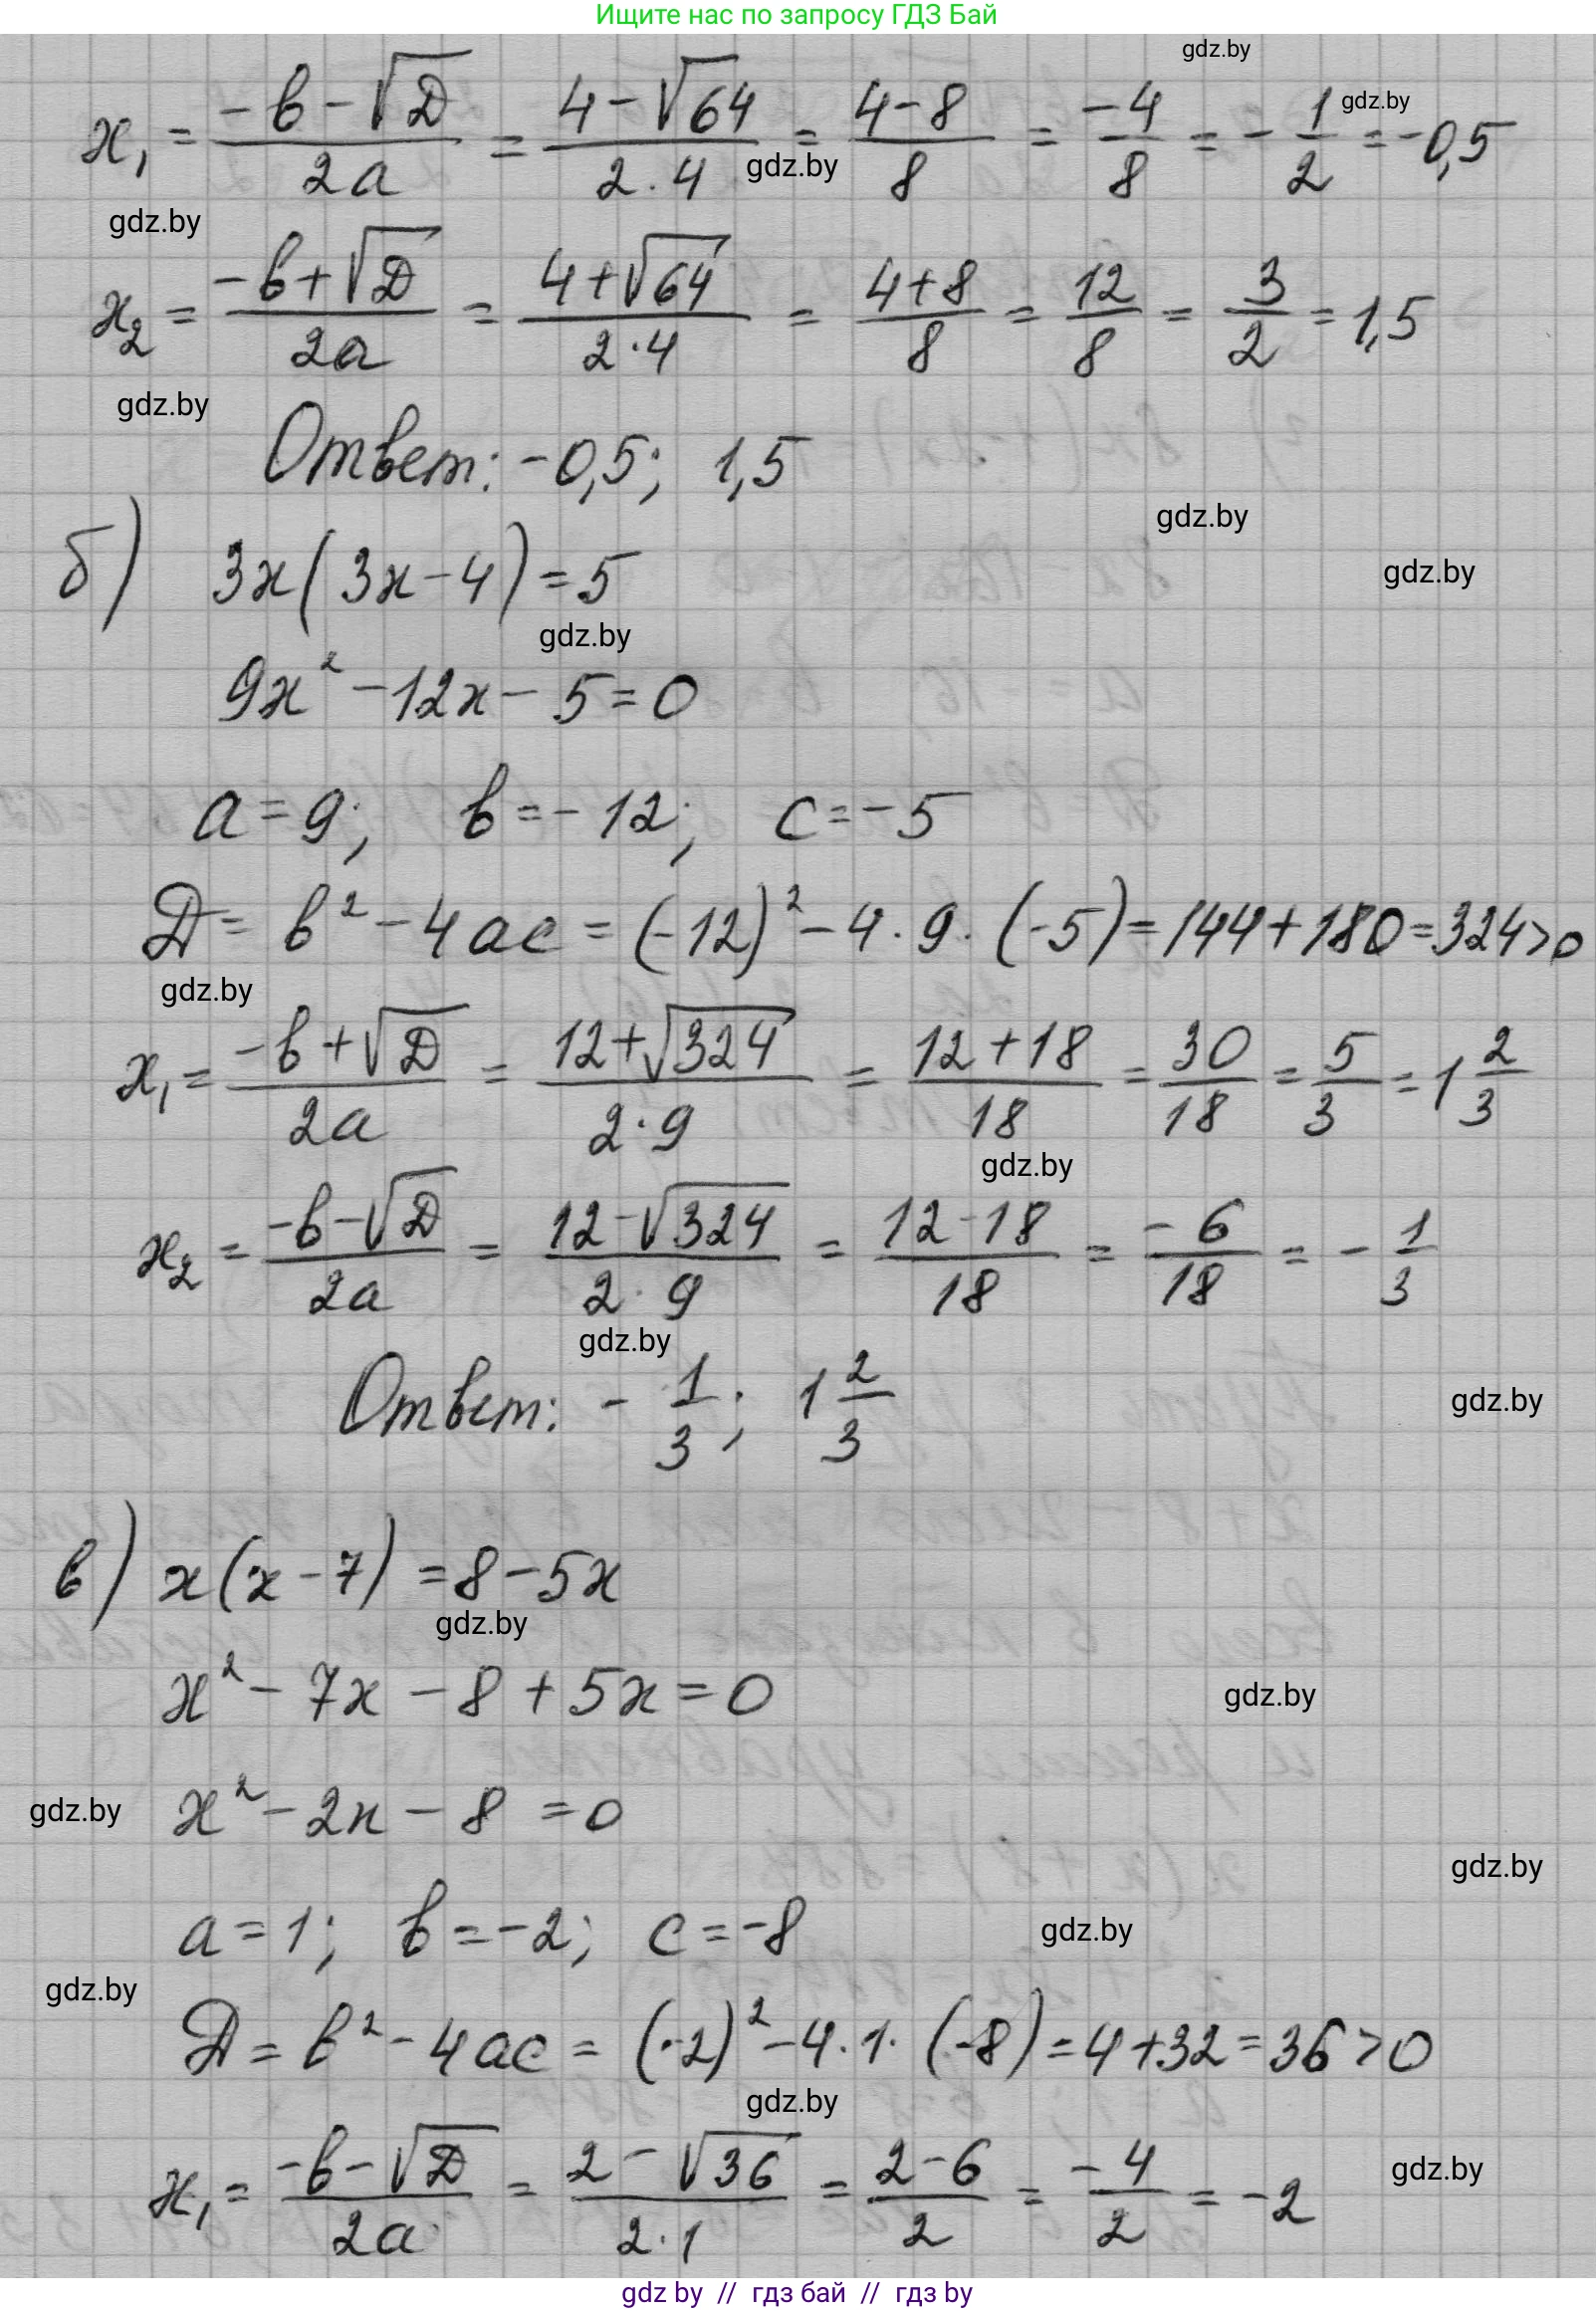 Ищите нас по запросу ГДЗ Бай
gdz.by
x₁ = (-b-√D)/(2a) = (4-√64)/(2·4) = (4-8)/8 = -4/8 = -1/2 = -0,5
gdz.by
gdz.by
gdz.by
x₂ = (-b+√D)/(2a) = (4+√64)/(2·4) = (4+8)/8 = 12/8 = 3/2 = 1,5
gdz.by
Ответ: -0,5; 1,5
gdz.by
б) 3x(3x-4)=5
gdz.by
gdz.by
9x²-12x-5=0
a=9; b=-12; c=-5
D = b²-4ac = (-12)²-4·9·(-5)=144+180=324>0
gdz.by
x₁ = (-b+√D)/(2a) = (12+√324)/(2·9) = (12+18)/18 = 30/18 = 5/3 = 1 2/3
gdz.by
x₂ = (-b-√D)/(2a) = (12-√324)/(2·9) = (12-18)/18 = -6/18 = -1/3
gdz.by
Ответ: -1/3; 1 2/3
gdz.by
в) x(x-7)=8-5x
gdz.by
x²-7x-8+5x=0
gdz.by
x²-2x-8=0
gdz.by
gdz.by
a=1; b=-2; c=-8
gdz.by
gdz.by
D = b²-4ac = (-2)²-4·1·(-8)=4+32=36>0
gdz.by
x₁ = (-b-√D)/(2a) = (2-√36)/(2·1) = (2-6)/2 = -4/2 = -2
gdz.by
gdz by // гдз бай // гдз by